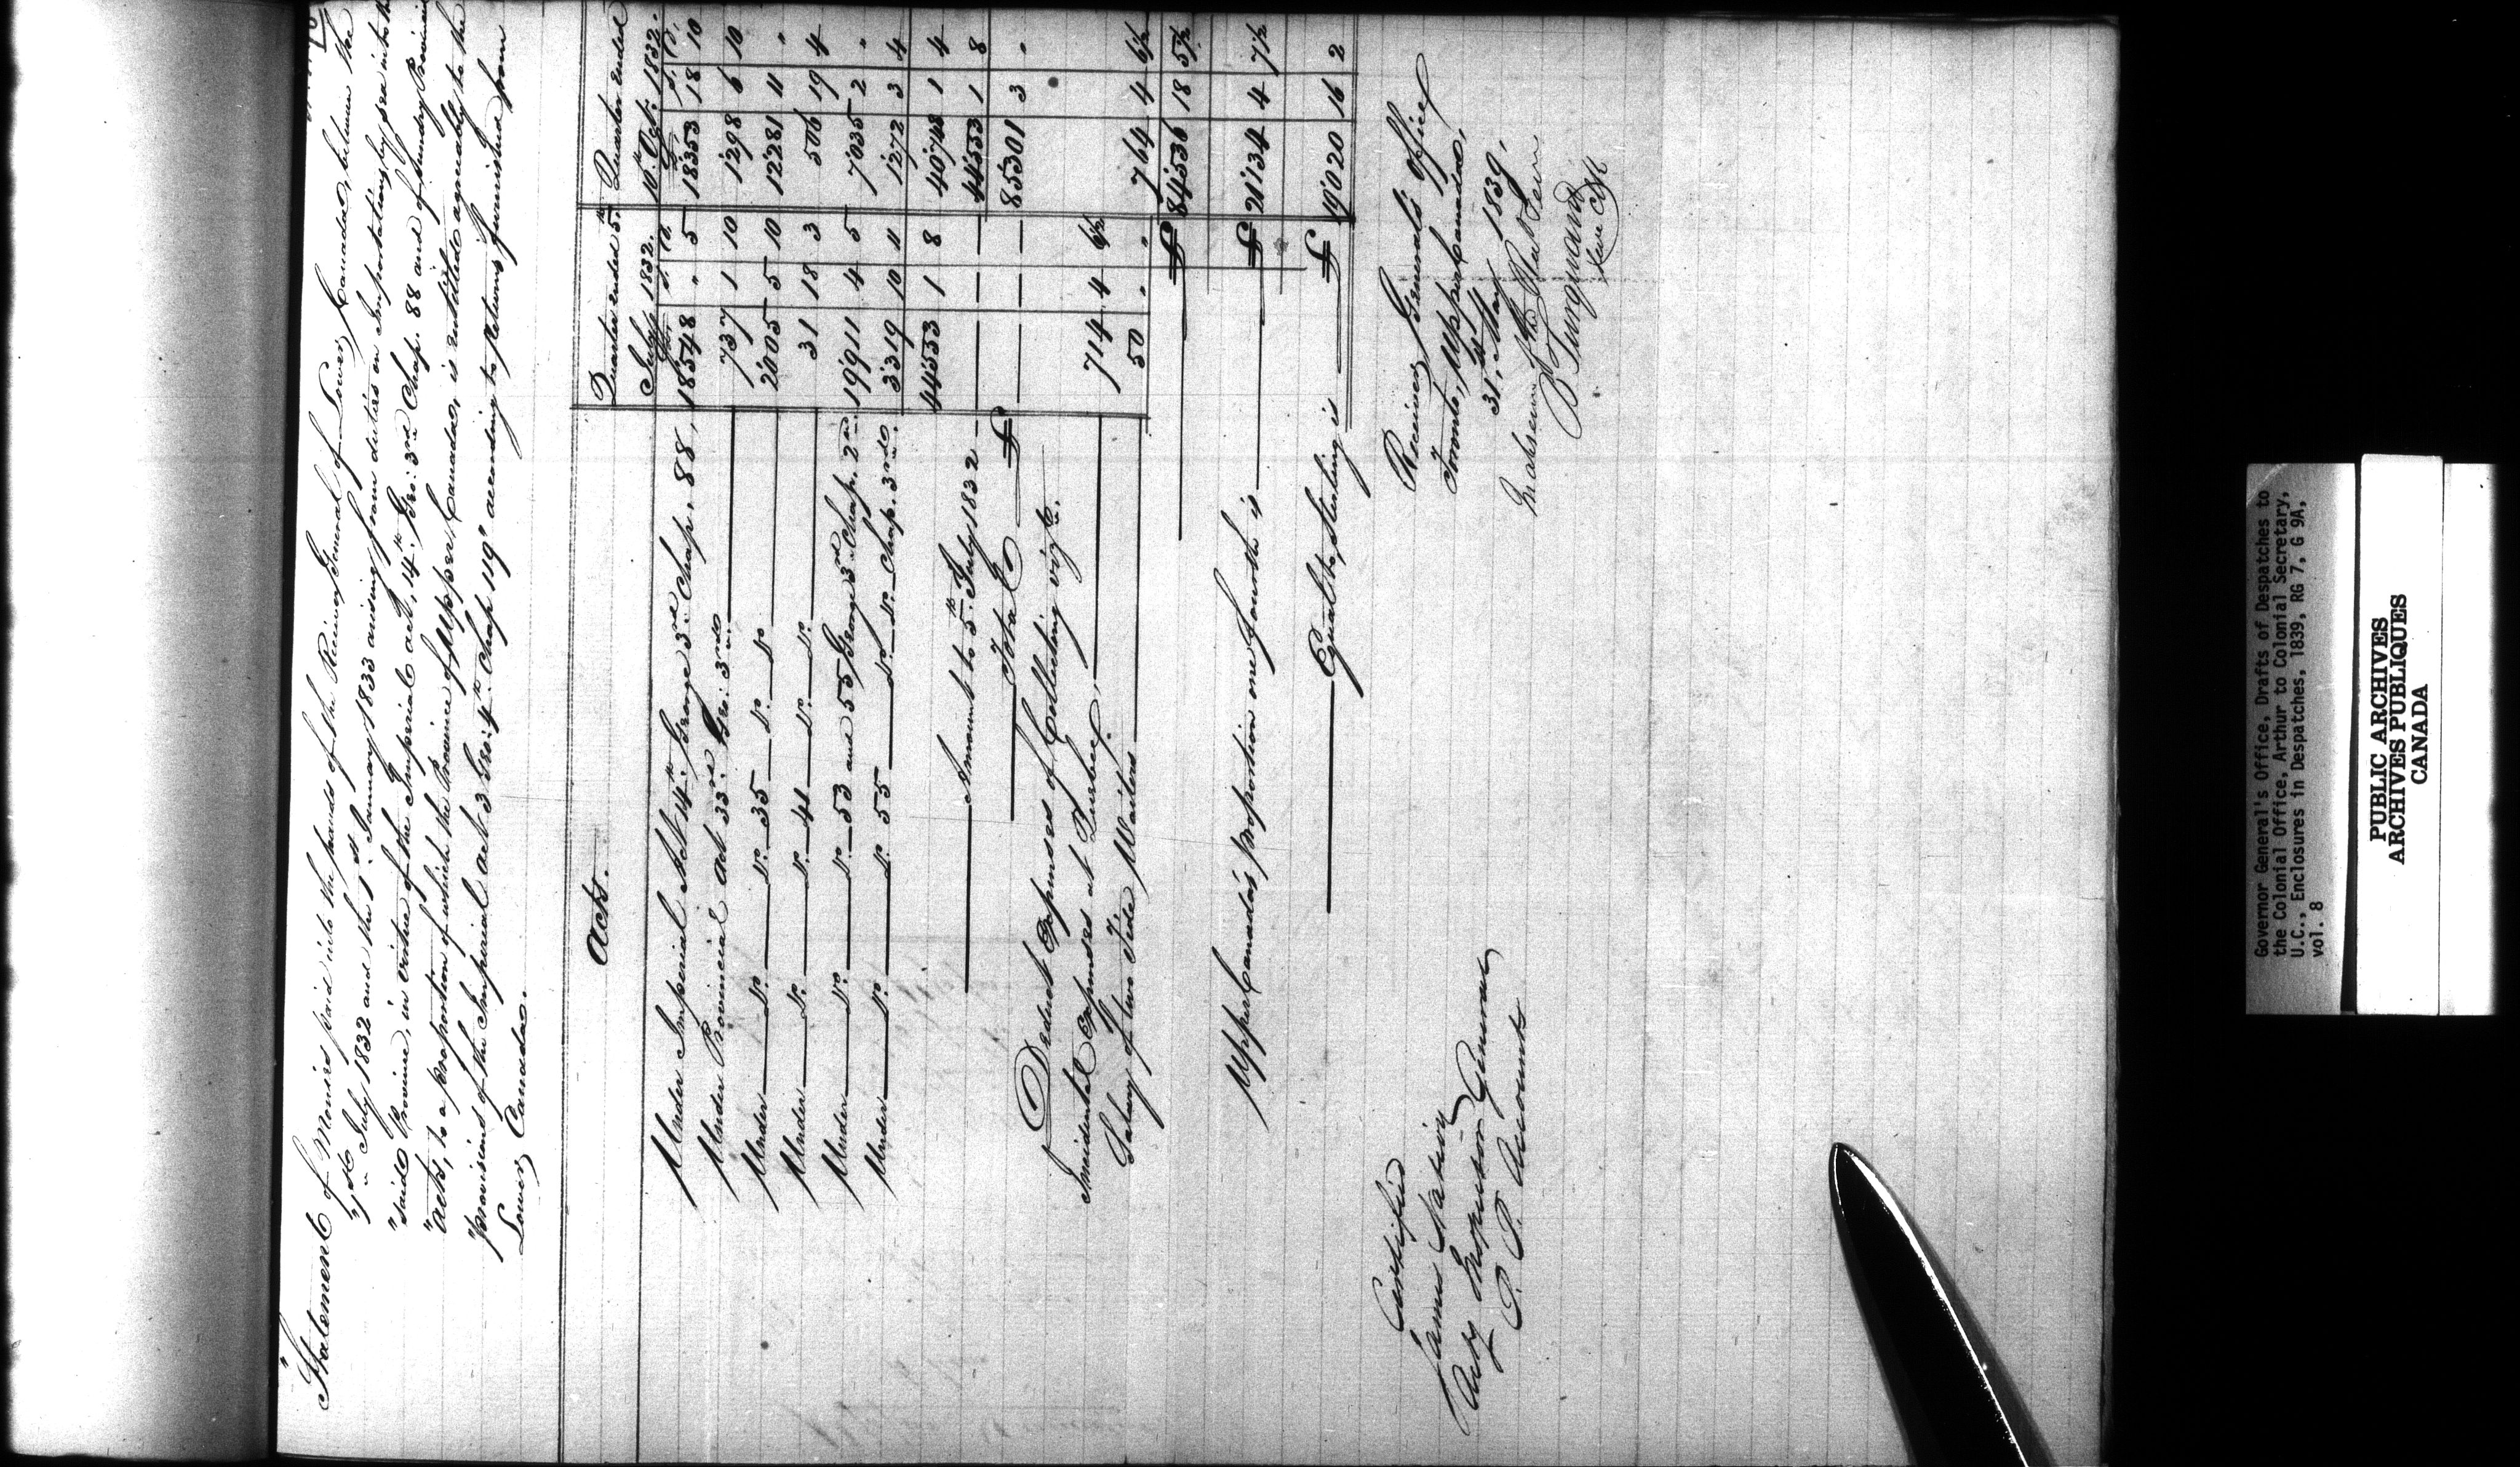 "Statement of Monies paid into the hands of the Receiver General of Lower Canada, between the
"5th July 1832 and the 5th January 1833 arising from duties on Importation by sea into the
"said Province, in virtue of the Imperial act, 14th Geo: 3rd Chap. 88 and of sundry Provincial
"acts, to a proportion of which the Province of Upper Canada, is entitled agreeably to the
"provisions of the Imperial act 3 Geo: 4th Chap 119" according to Returns furnished from
Lower Canada.
Acts. Quarter ended 5th July 1832. Quarter ended 10th Oct: 1832.
£ s. d. £ s. d.
Under Imperial Act 14th George 3rd Chap. 88, 18'548 " 5 18'353 18 10
Under Provincial act 33rd Geo: 3rd 737 1 10 1'298 6 10
Under Do. Do. 35 Do. Do. 2'005 5 10 12'281 11 "
Under Do. Do. 41 Do. Do. 31 18 3 506 19 4
Under Do. Do. 53 and 55 George 3rd Chap. 2nd. 19'911 4 5 7'035 2 "
Under Do. Do. 55 Do. Do. Chap. 3rd. 3'319 10 11 1'272 3 4
44'553 1 8 40'748 1 4
Amount to 5th July 1832 44'553 1 8
Total £ 85'301 3 "
Deduct Expenses of Collecting viz.
Incidental Expenses at Quebec, 714 4 6½
Salary of two Tide Waiters 50 " " 764 4 6½
£ 84'536 18 5½
Upper Canada's proportion one fourth is £ 21'134 4 7½
Equal to, sterling is £ 19'020 16 2
Certified
James Nation
Acty Inspector General
P. P. Accounts
Receiver General's Office
Toronto, Upper Canada,
31st May 1839.
B Turquand
Governor General's Office, Drafts of Despatches to
the Colonial Office, Arthur to Colonial Secretary,
U.C., Enclosures in Despatches, 1839, RG 7, G 9A,
vol. 8
PUBLIC ARCHIVES
ARCHIVES PUBLIQUES
CANADA